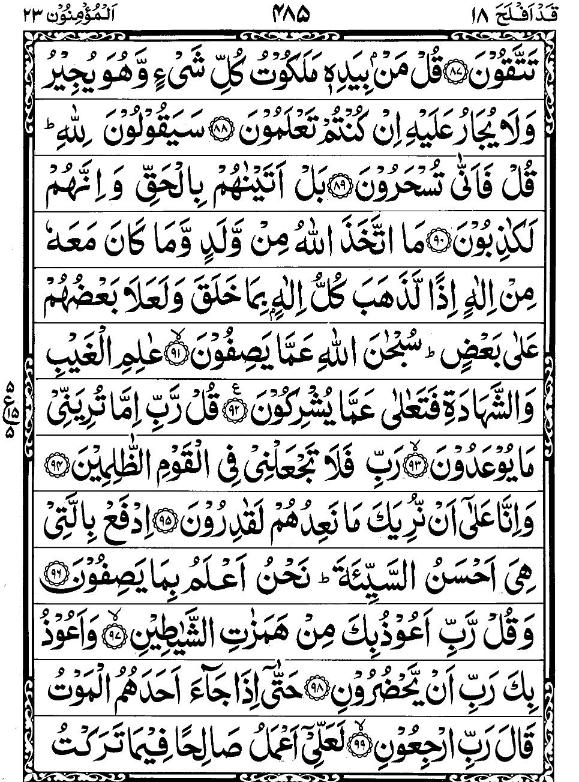 قَدْ اَفْلَحَ ١٨ ۴۸۵ اَلْمُؤْمِنُوْن ٢٣
تَتَّقُوْنَ ﴿۸۷﴾ قُلْ مَنْۢ بِيَدِهٖ مَلَكُوْتُ كُلِّ شَیْءٍ وَّهُوَ يُجِيْرُ
وَلَا يُجَارُ عَلَيْهِ اِنْ كُنْتُمْ تَعْلَمُوْنَ ﴿۸۸﴾ سَيَقُوْلُوْنَ لِلّٰهِ ؕ
قُلْ فَاَنّٰى تُسْحَرُوْنَ ﴿۸۹﴾ بَلْ اَتَيْنٰهُمْ بِالْحَقِّ وَاِنَّهُمْ
لَكٰذِبُوْنَ ﴿۹۰﴾ مَا اتَّخَذَ اللّٰهُ مِنْ وَّلَدٍ وَّمَا كَانَ مَعَهٗ
مِنْ اِلٰهٍ اِذًا لَّذَهَبَ كُلُّ اِلٰهٍۭ بِمَا خَلَقَ وَلَعَلَا بَعْضُهُمْ
عَلٰى بَعْضٍ ؕ سُبْحٰنَ اللّٰهِ عَمَّا يَصِفُوْنَ ۙ﴿۹۱﴾ عٰلِمِ الْغَيْبِ
وَالشَّهَادَةِ فَتَعٰلٰى عَمَّا يُشْرِكُوْنَ ﴿۹۲﴾ ع قُلْ رَّبِّ اِمَّا تُرِيَنِّیْ
۵ ع ۱۵ ۵
مَا يُوْعَدُوْنَ ۙ﴿۹۳﴾ رَبِّ فَلَا تَجْعَلْنِیْ فِی الْقَوْمِ الظّٰلِمِيْنَ ﴿۹۴﴾
وَاِنَّا عَلٰٓى اَنْ نُّرِيَكَ مَا نَعِدُهُمْ لَقٰدِرُوْنَ ﴿۹۵﴾ اِدْفَعْ بِالَّتِیْ
هِیَ اَحْسَنُ السَّيِّئَةَ ؕ نَحْنُ اَعْلَمُ بِمَا يَصِفُوْنَ ﴿۹۶﴾
وَقُلْ رَّبِّ اَعُوْذُ بِكَ مِنْ هَمَزٰتِ الشَّيٰطِيْنِ ۙ﴿۹۷﴾ وَاَعُوْذُ
بِكَ رَبِّ اَنْ يَّحْضُرُوْنِ ﴿۹۸﴾ حَتّٰٓى اِذَا جَآءَ اَحَدَهُمُ الْمَوْتُ
قَالَ رَبِّ ارْجِعُوْنِ ۙ﴿۹۹﴾ لَعَلِّیْۤ اَعْمَلُ صَالِحًا فِيْمَا تَرَكْتُ